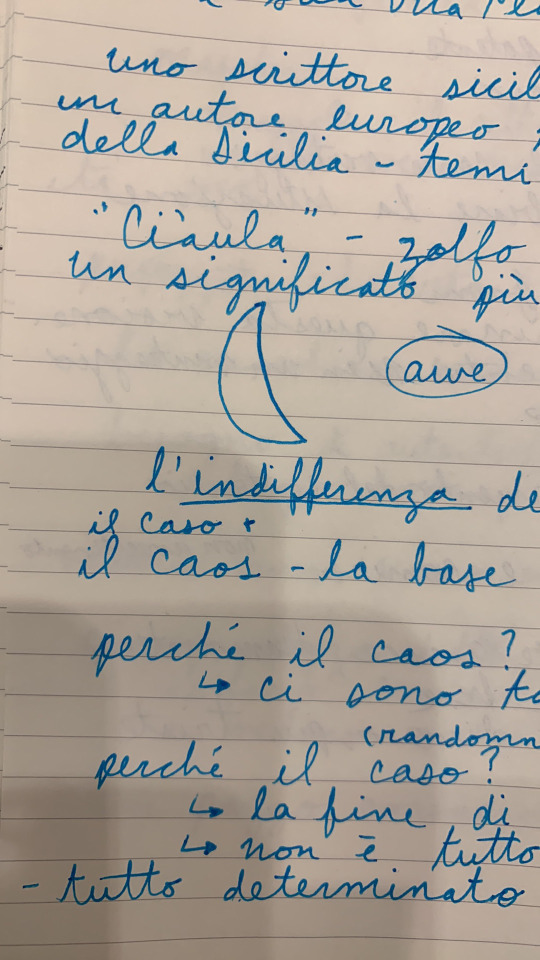 uno scrittore sicil
un autore europeo
della Sicilia - temi
"Ciàula" - zolfo
un significato più
awe
l'indifferenza de
il caso +
il caos - la base
perché il caos?
↳ ci sono to
(randomn
perché il caso?
↳ la fine di
↳ non è tutto
- tutto determinato